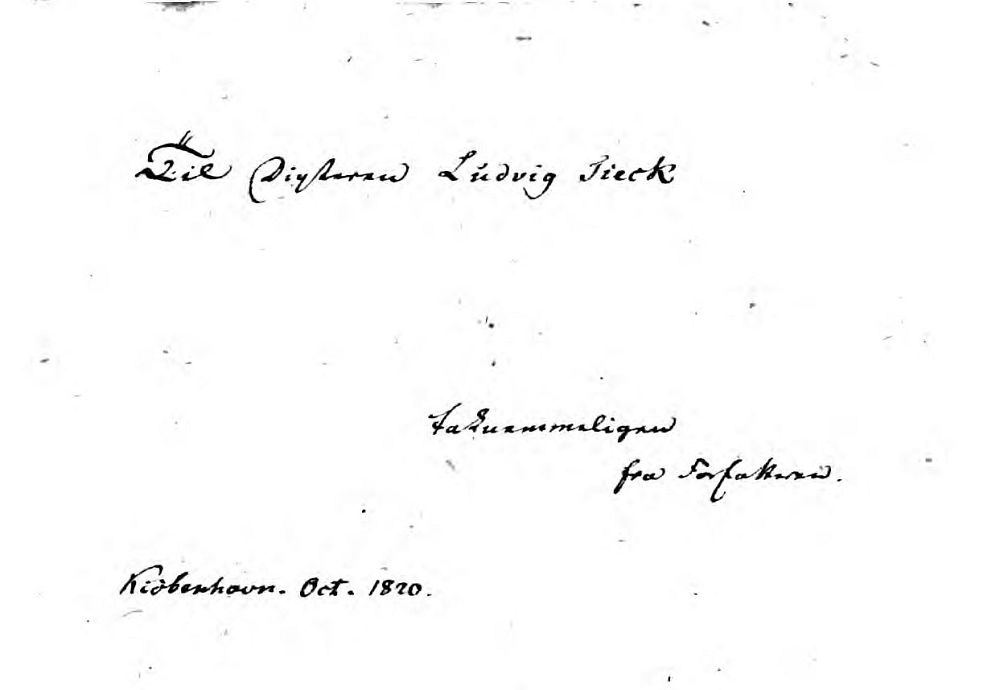 Til Digteren Ludvig Tieck
taknemmeligen
fra Forfatteren.
Kiöbenhavn. Oct. 1820.